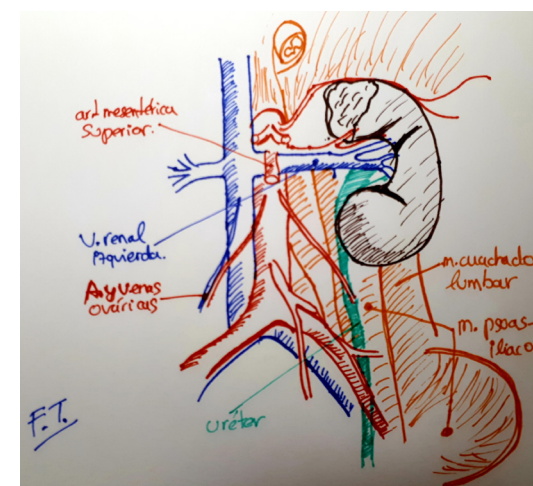 art mesentérica
Superior.
V. renal
izquierda.
A. y venas
ováricas
m. cuadrado
lumbar
m. psoas-
iliaco
Uréter
F.T.